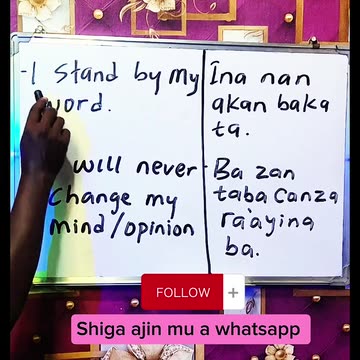 - I stand by my
word.
Ina nan
akan baka
ta.
will never
change my
mind/opinion
- Ba zan
taba canza
ra'ayina
ba.
FOLLOW +
Shiga ajin mu a whatsapp